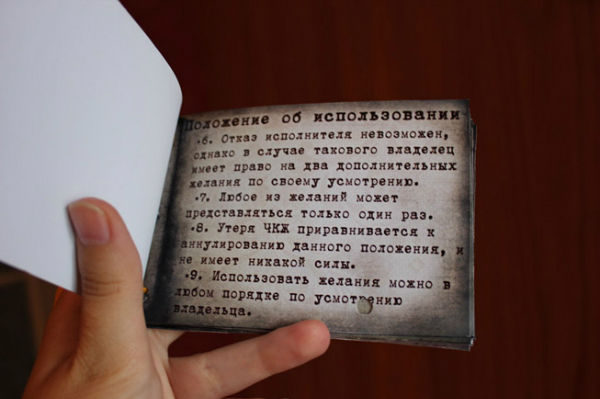 Положение об использовании
•6. Отказ исполнителя невозможен,
однако в случае такового владелец
имеет право на два дополнительных
желания по своему усмотрению.
•7. Любое из желаний может
представляться только один раз.
•8. Утеря ЧКЖ приравнивается к
аннулированию данного положения, и
не имеет никакой силы.
•9. Использовать желания можно в
любом порядке по усмотрению
владельца.